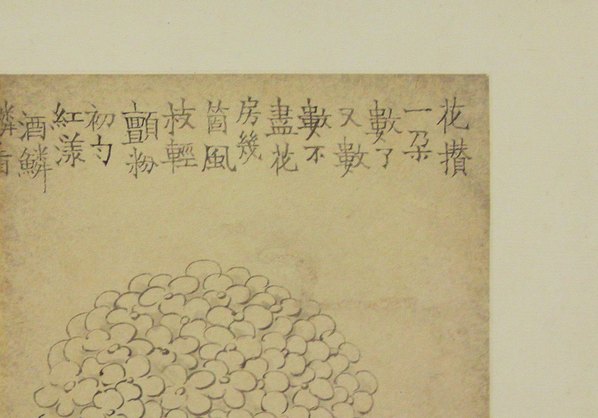 花攢
一朵
數了
又數
數不
盡花
房幾
箇風
枝輕
顫粉
初勻
紅漾
酒鱗